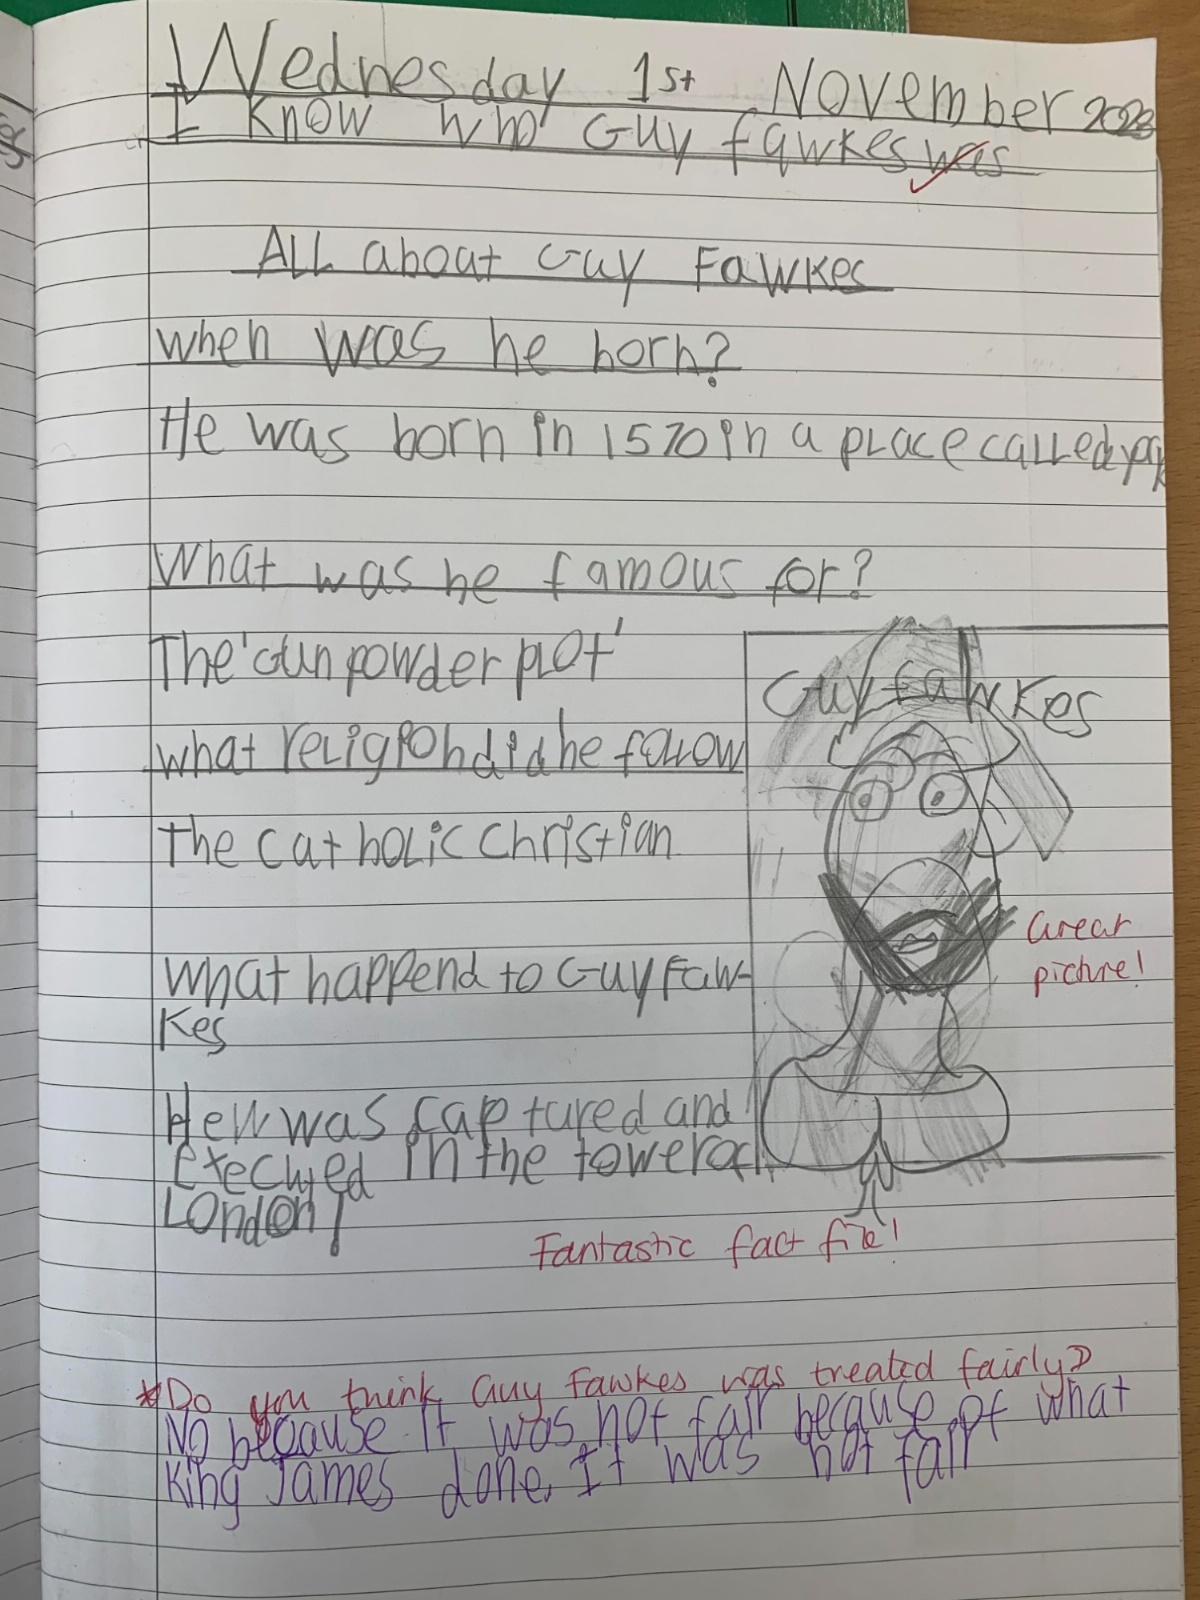 Wednesday 1st November 2023
I know who Guy fawkes was
All about Guy Fawkes
when was he born?
He was born in 1570 in a place called
What was he famous for?
The 'Gunpowder plot'
what religion did he follow
The catholic christian
Guy fawkes
Great
picture!
What happend to Guy Faw-
kes
was captured and
in the tower of
London!
Fantastic fact file!
*Do you think Guy Fawkes was treated fairly?
No because it was not fair because of what
king James done. It was not fair